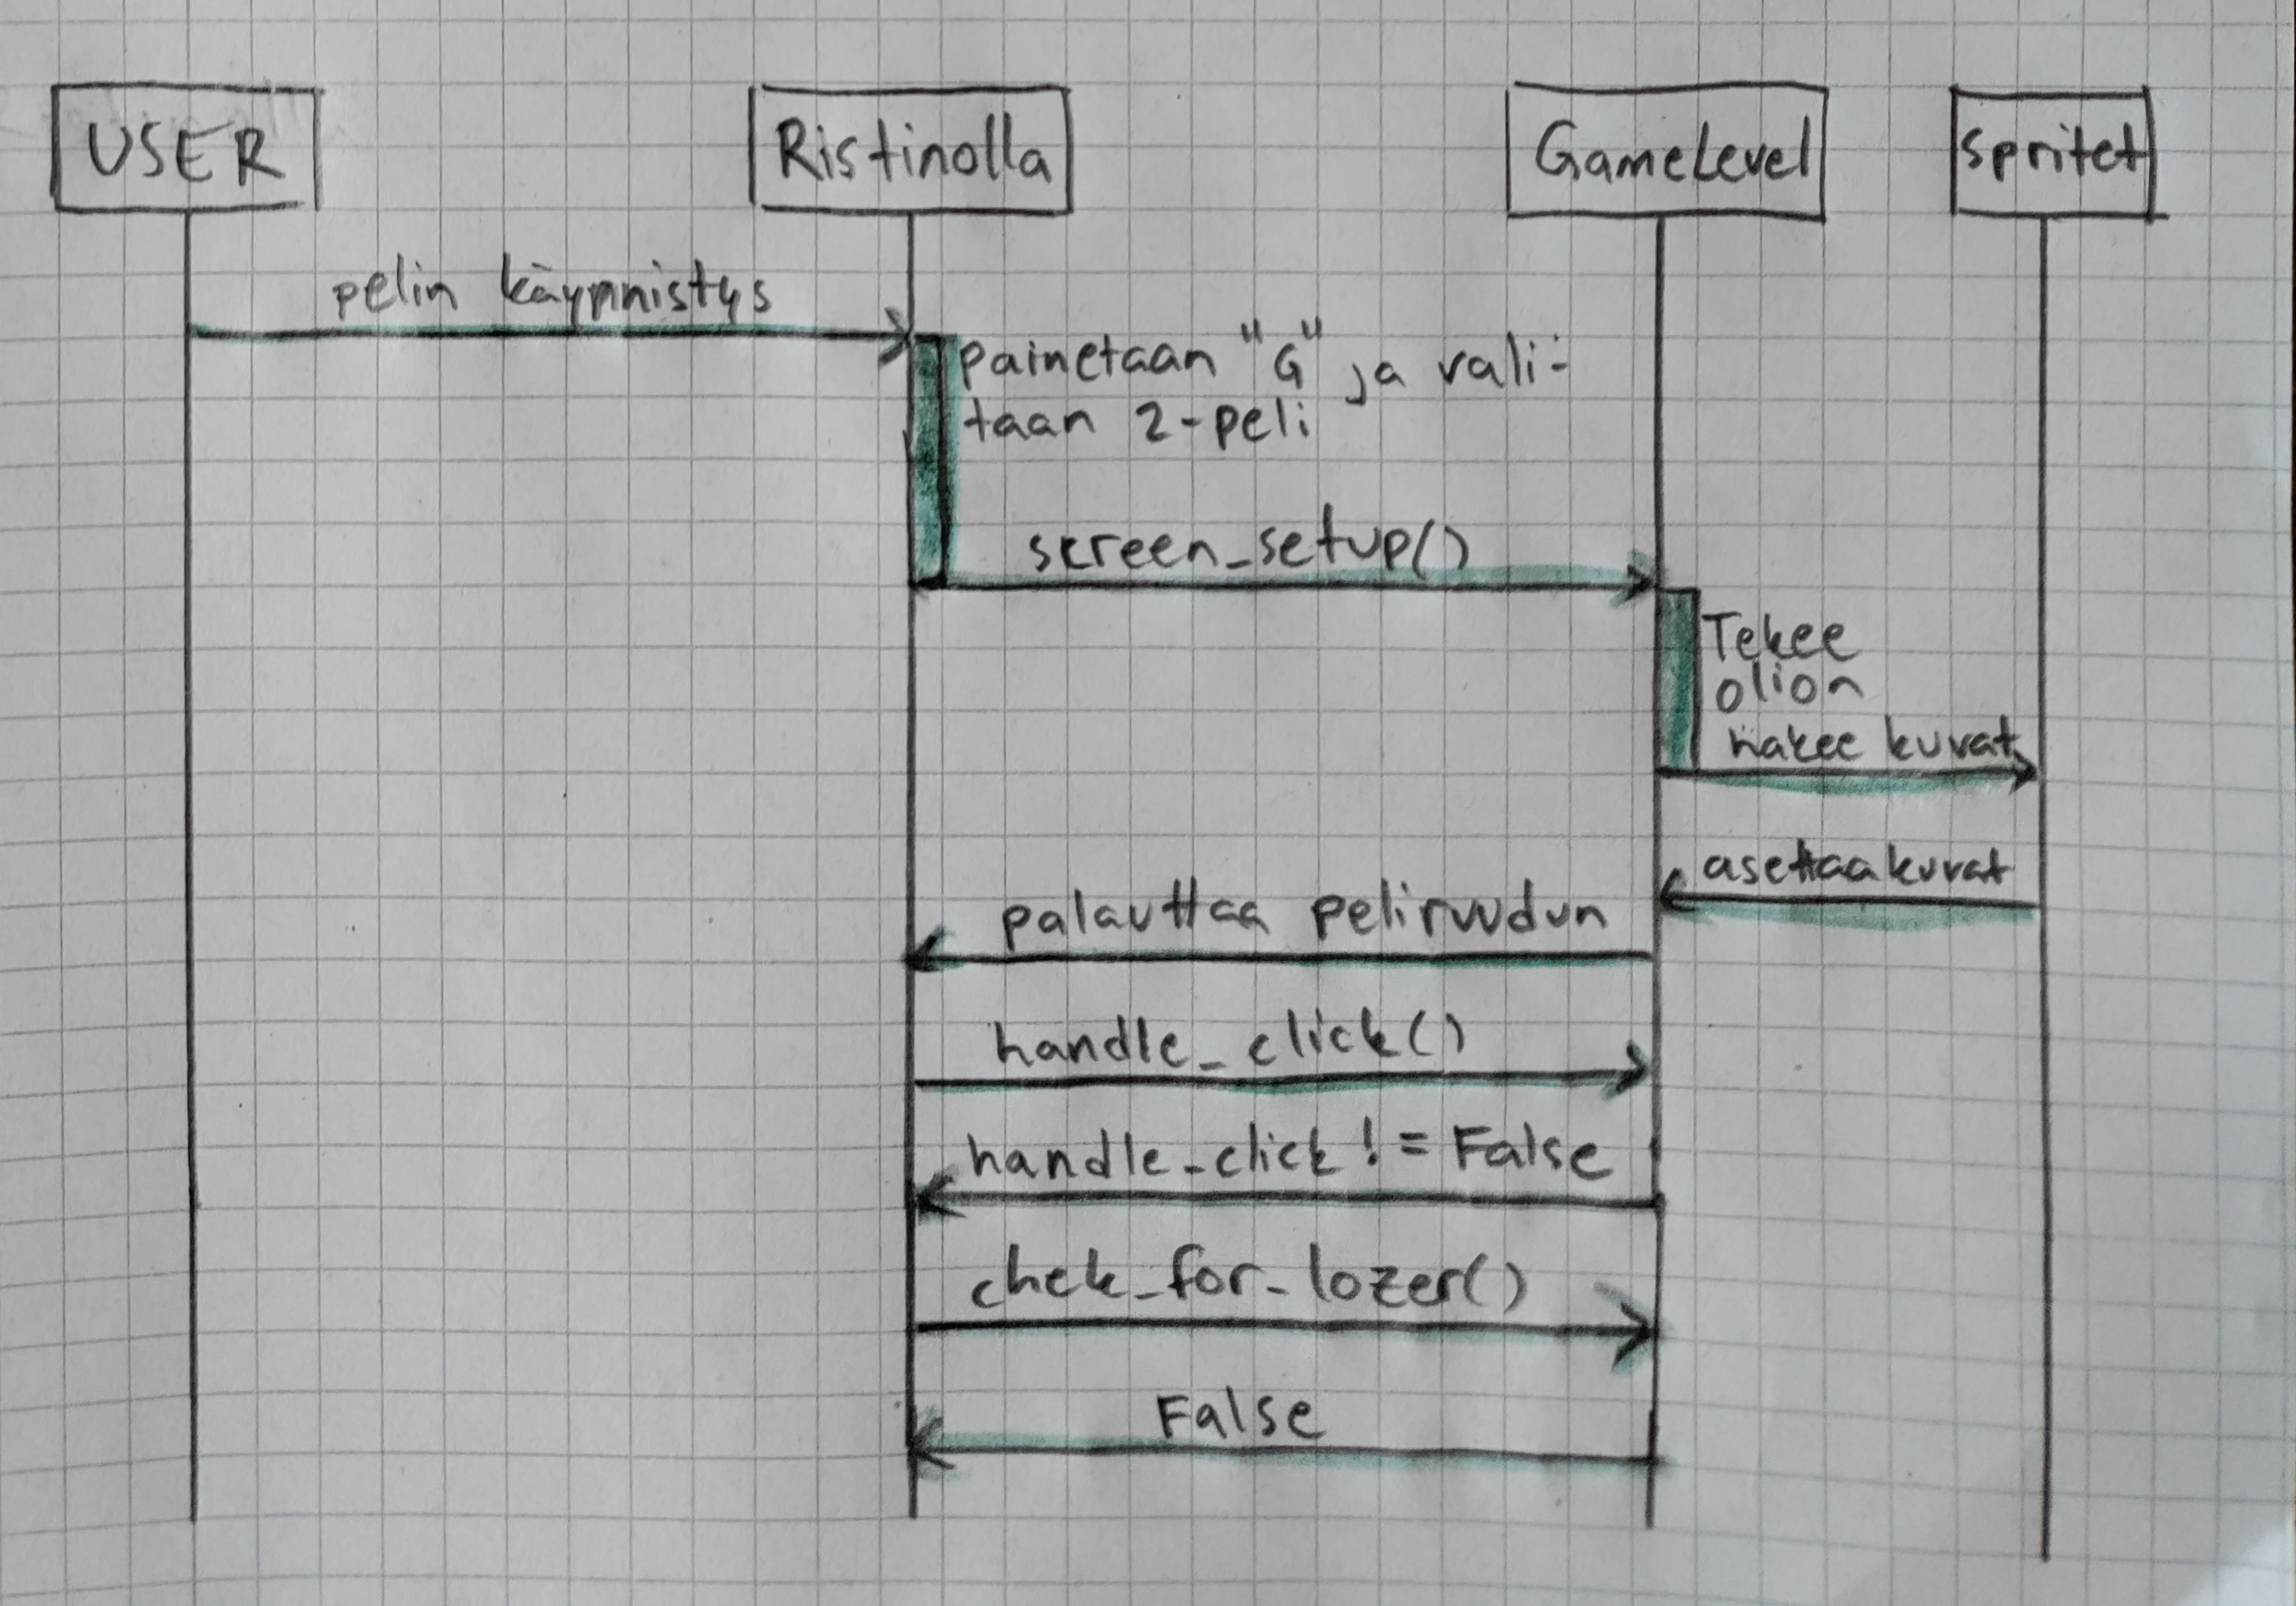 USER
Ristinolla
GameLevel
spritet
pelin käynnistys
painetaan "G" ja vali-
taan 2-peli
screen_setup()
Tekee
olion
hakee kuvat
asettaa kuvat
palauttaa peliruudun
handle_click()
handle_click != False
chek_for_lozer()
False